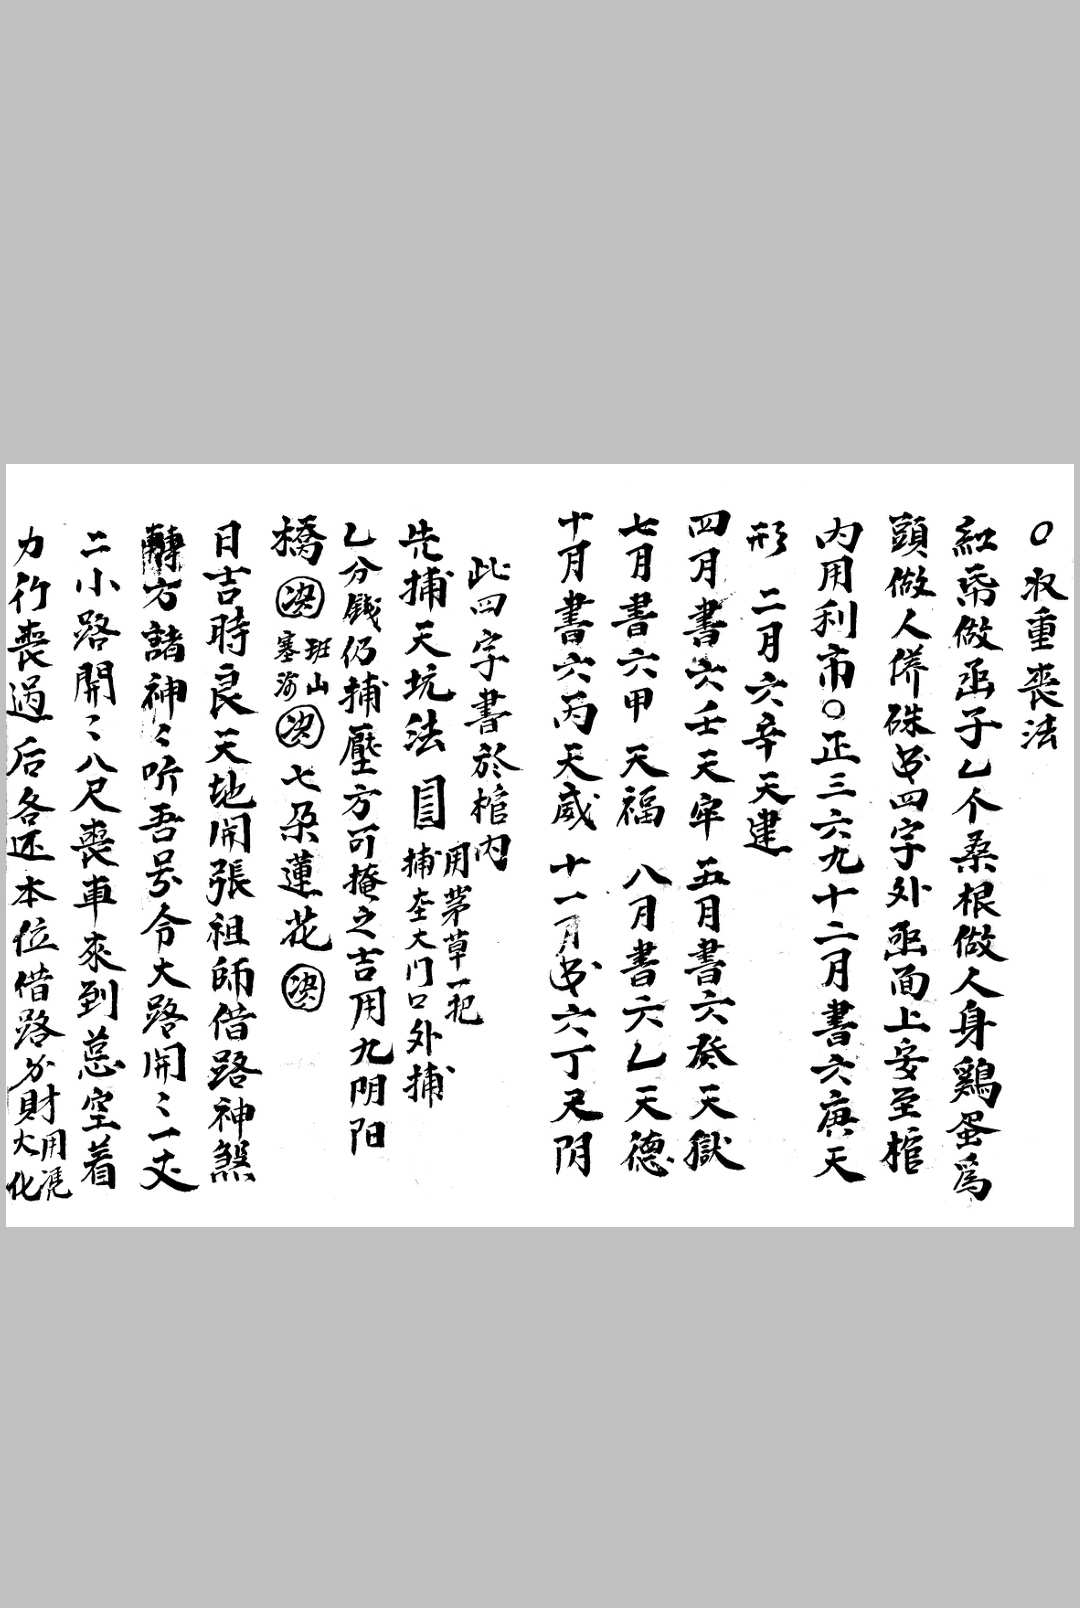 ○收重喪法
紅帋做函子乙个桑根做人身鷄蛋爲
頭做人像硃书四字外函面上安至棺
内用利市○正三六九十二月書六庚天
形 二月六辛天建
四月書六壬天牢 五月書六癸天獄
七月書六甲 天福 八月書六乙天德
十月書六丙天威 十一月书六丁天阴
此四字書於棺内
先捕天坑法 目 用茅草一把 捕在大门口外捕
乙分錢仍捕壓方可掩之吉用九阴阳
橋 决 班山 塞海 决 七朵蓮花 决
日吉時良天地開張祖師借路神煞
轉方諸神〻听吾号令大路開〻一丈
二小路開〻八尺喪車來到急空着
力行喪過后各还本位借路分財用 大化